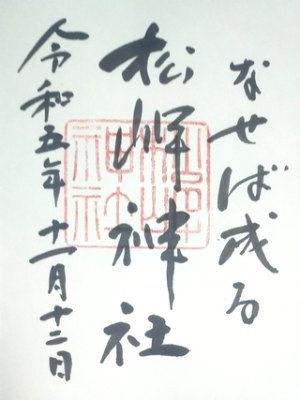 なせば成る
松岬神社
松岬
神社
令和五年十一月十二日